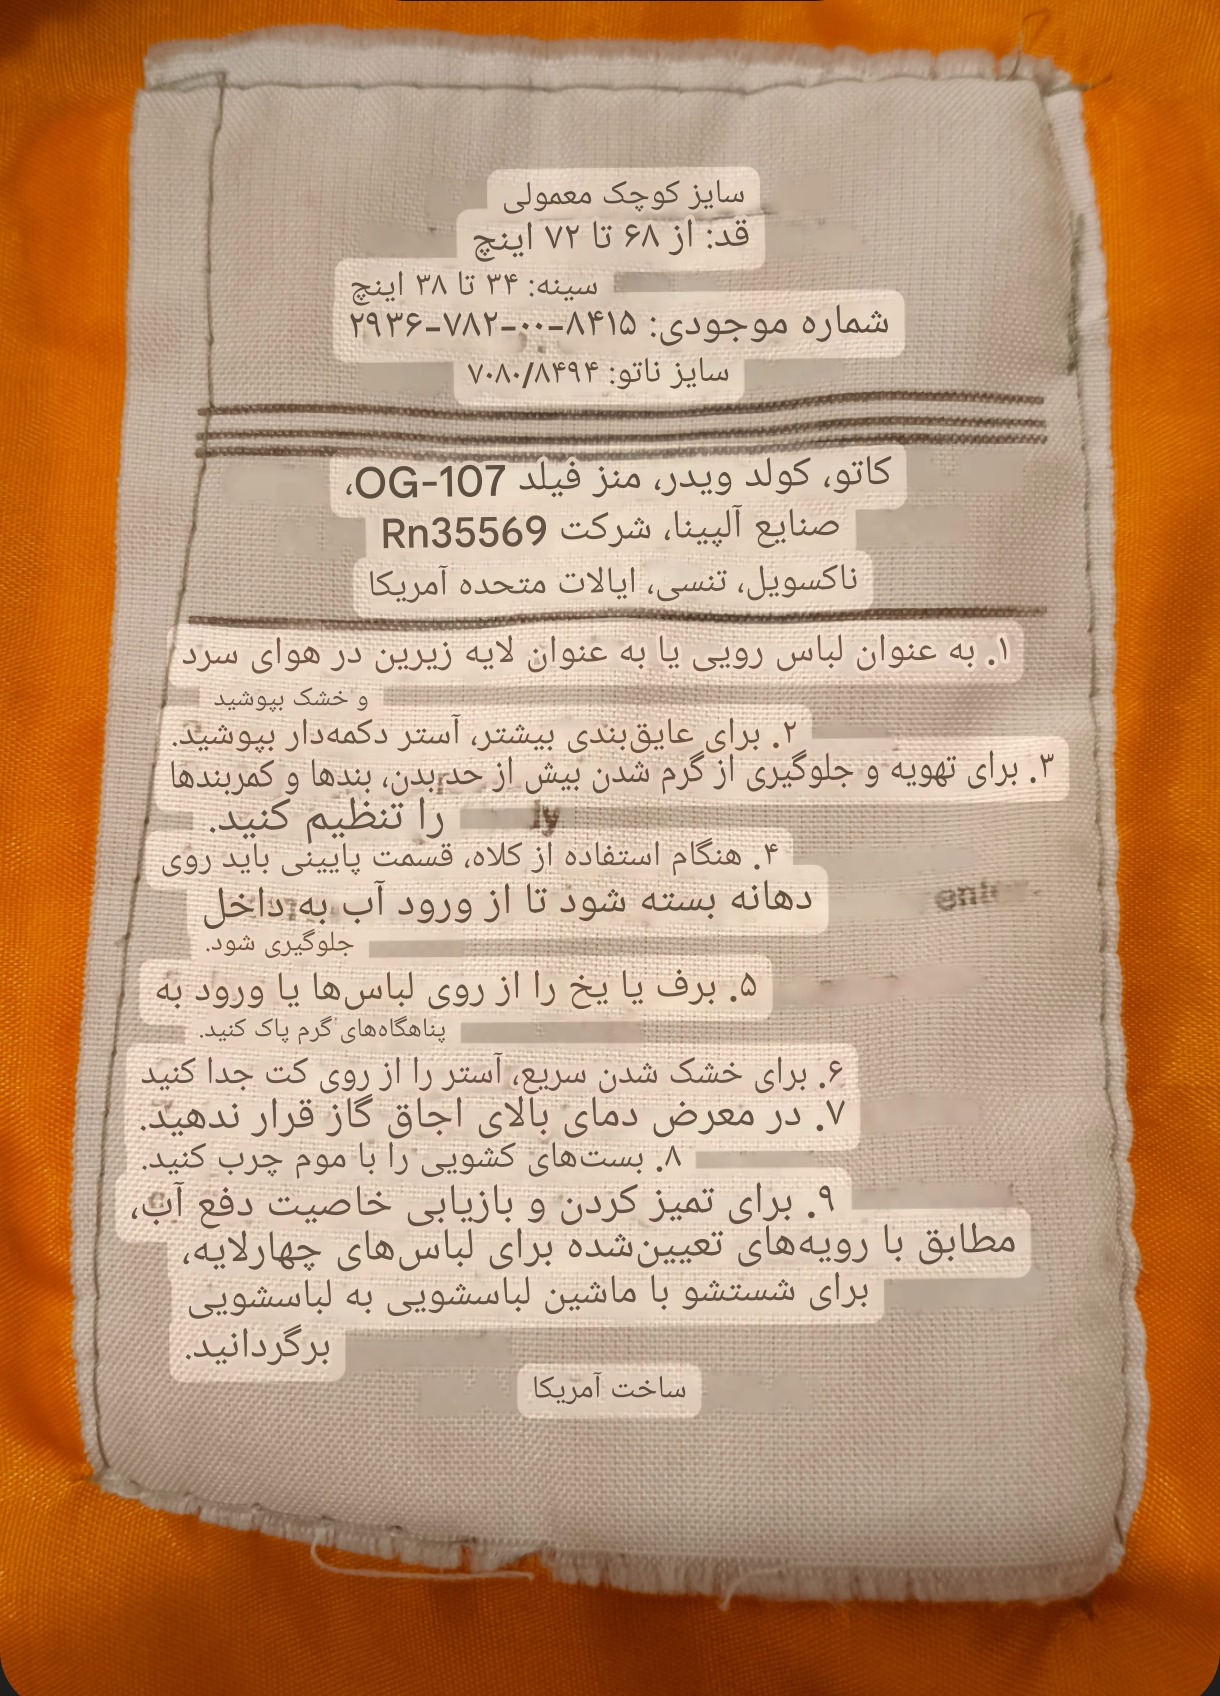 سایز کوچک معمولی
قد: از ۶۸ تا ۷۲ اینچ
سینه: ۳۴ تا ۳۸ اینچ
شماره موجودی: ۸۴۱۵-۰۰-۷۸۲-۲۹۳۶
سایز ناتو: ۷۰۸۰/۸۴۹۴
کاتو، کولد ویدر، منز فیلد OG-107،
صنایع آلپینا، شرکت Rn35569
ناکسویل، تنسی، ایالات متحده آمریکا
۱. به عنوان لباس رویی یا به عنوان لایه زیرین در هوای سرد
و خشک بپوشید
۲. برای عایق‌بندی بیشتر، آستر دکمه‌دار بپوشید.
۳. برای تهویه و جلوگیری از گرم شدن بیش از حد بدن، بندها و کمربندها
را تنظیم کنید. ly
۴. هنگام استفاده از کلاه، قسمت پایینی باید روی
دهانه بسته شود تا از ورود آب به داخل
جلوگیری شود.
۵. برف یا یخ را از روی لباس‌ها یا ورود به
پناهگاه‌های گرم پاک کنید.
۶. برای خشک شدن سریع، آستر را از روی کت جدا کنید
۷. در معرض دمای بالای اجاق گاز قرار ندهید.
۸. بست‌های کشویی را با موم چرب کنید.
۹. برای تمیز کردن و بازیابی خاصیت دفع آب،
مطابق با رویه‌های تعیین‌شده برای لباس‌های چهارلایه،
برای شستشو با ماشین لباسشویی به لباسشویی
برگردانید.
ساخت آمریکا